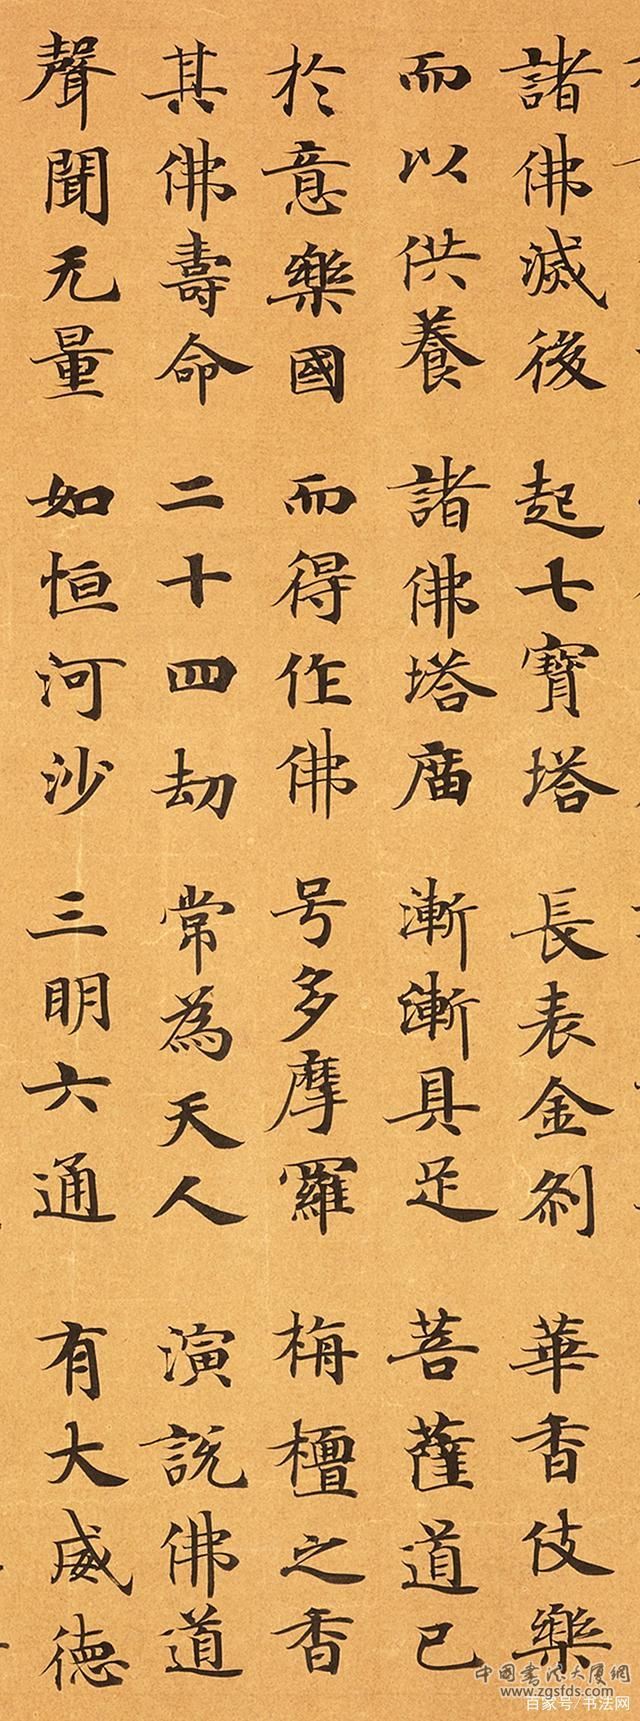 諸佛滅後 起七寶塔 長表金刹 華香伎樂
而以供養 諸佛塔廟 漸漸具足 菩薩道已
於意樂國 而得作佛 号多摩羅 栴檀之香
其佛壽命 二十四劫 常為天人 演説佛道
聲聞无量 如恒河沙 三明六通 有大威徳
中國書法大廈網
www.zgsfds.com
百家号/书法网